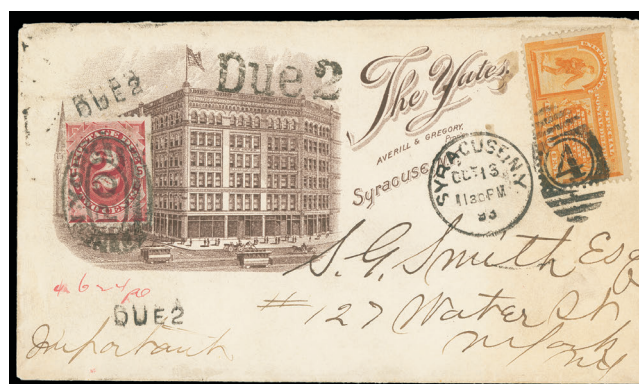 DUE2
Due2
The Yates,
AVERILL & GREGORY,
Props.
Syracuse
SYRACUSE, N.Y.
OCT 13
1130PM
93
4
2
S. G. Smith Esq
#127 Water St
N York
NY
DUE2
Important